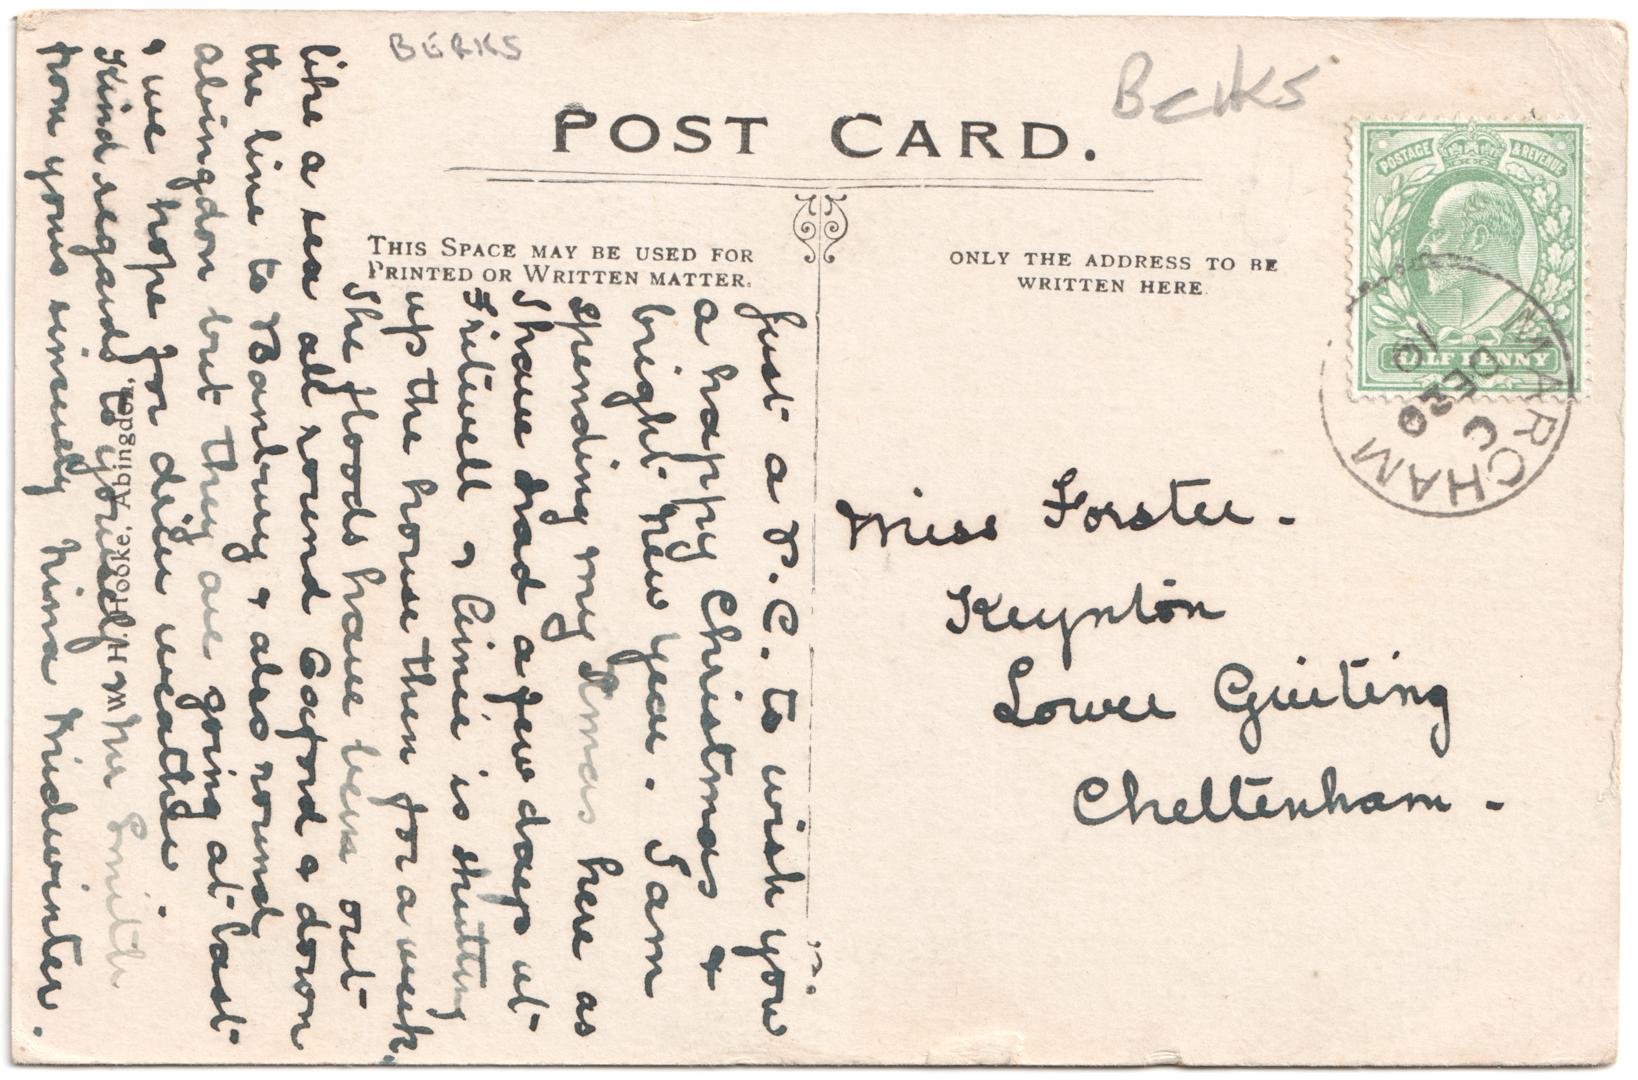 BERKS
Berks
POST CARD.
THIS SPACE MAY BE USED FOR
PRINTED OR WRITTEN MATTER.
ONLY THE ADDRESS TO BE
WRITTEN HERE.
POSTAGE & REVENUE
HALF PENNY
MARCHAM
C
DE 20
10
Just a P.C. to wish you
a happy Christmas &
bright New Year. I am
spending my Xmas here as
I have had a few days at
Fritwell & Aimie is shutting
up the house then for a week.
The floods have been out
like a sea all round Oxford & down
the line to Banbury & also round
Abingdon but they are going at last
& we hope for drier weather.
Kind regards to yourself & Mr Smith
from yours sincerely Nina Midwinter.
W. H. Hooke, Abingdon.
Miss Forster.
Keynton
Lower Guiting
Cheltenham.